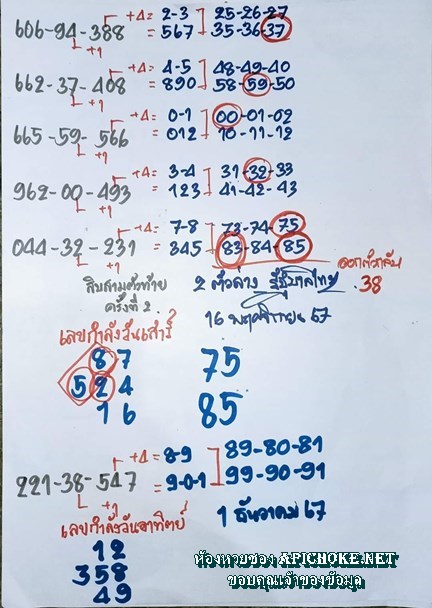 606-94-388 +4= 2-3 25-26-27
+1 = 567 35-36-37
662-37-408 +4= 4-5 48-49-40
+1 = 890 58-59-50
665-59-566 +4= 0-1 00-01-02
+1 = 012 10-11-12
962-00-493 +4= 3-4 31-32-33
+1 = 123 41-42-43
044-32-231 +4= 7-8 73-74-75
+1 = 345 83-84-85
ออกตัวกลับ
38
สิบสามตัวท้าย
ครั้งที่ 2.
2 ตัวล่าง รัฐบาลไทย
16 พฤศจิกายน 67
เลขกำลังวันเสาร์
87
524
16
75
85
221-38-547 +4= 8-9 89-80-81
+1 = 9-0-1 99-90-91
1 ธันวาคม 67
เลขกำลังวันอาทิตย์
12
358
49
ห้องหวยซอง APICHOKE.NET
ขอบคุณเจ้าของข้อมูล